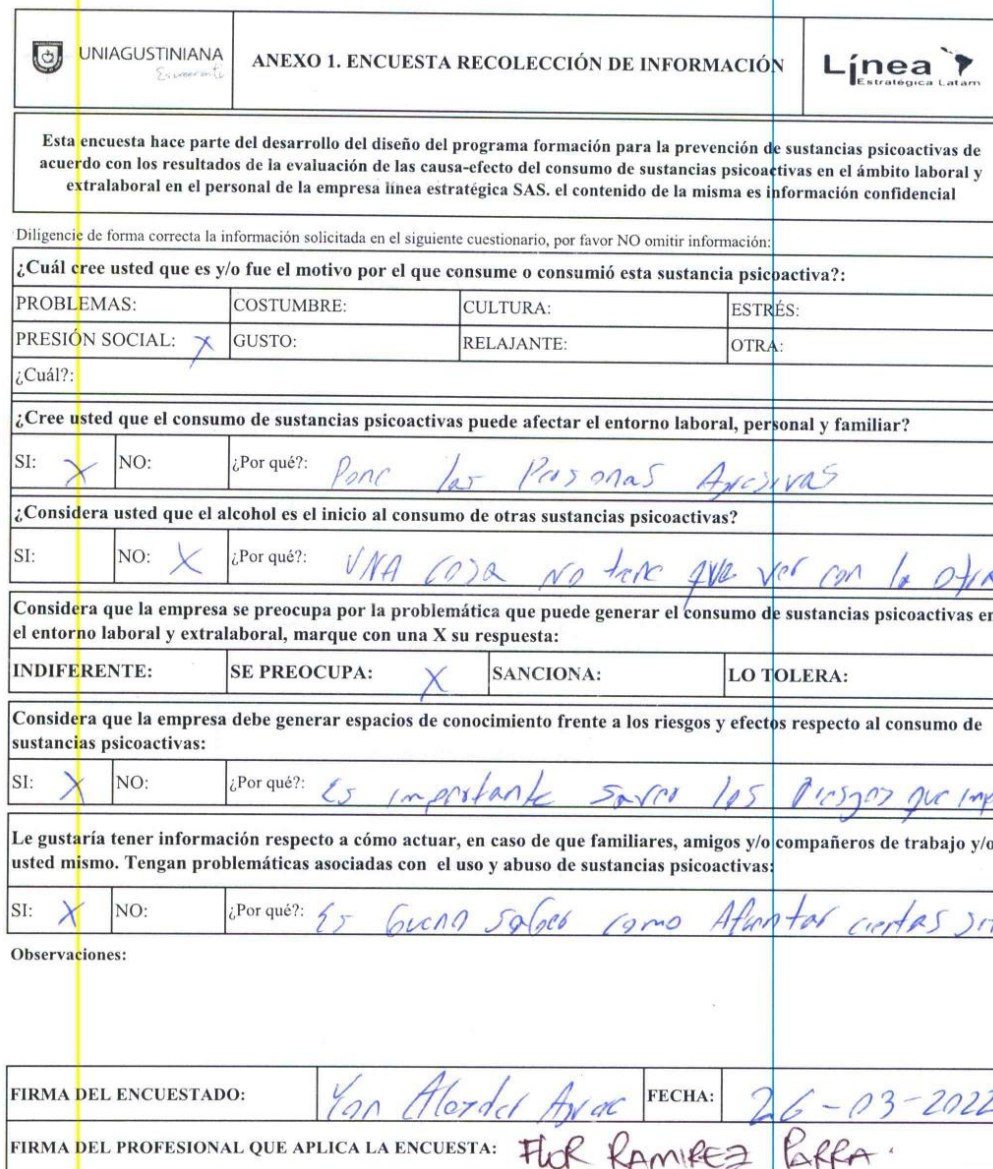 UNIAGUSTINIANA
ANEXO 1. ENCUESTA RECOLECCIÓN DE INFORMACIÓN
Línea
Estratégica Latam
Esta encuesta hace parte del desarrollo del diseño del programa formación para la prevención de sustancias psicoactivas de
acuerdo con los resultados de la evaluación de las causa-efecto del consumo de sustancias psicoactivas en el ámbito laboral y
extralaboral en el personal de la empresa línea estratégica SAS. el contenido de la misma es información confidencial
Diligencie de forma correcta la información solicitada en el siguiente cuestionario, por favor NO omitir información:
¿Cuál cree usted que es y/o fue el motivo por el que consume o consumió esta sustancia psicoactiva?:
PROBLEMAS: COSTUMBRE: CULTURA: ESTRÉS:
PRESIÓN SOCIAL: X GUSTO: RELAJANTE: OTRA:
¿Cuál?:
¿Cree usted que el consumo de sustancias psicoactivas puede afectar el entorno laboral, personal y familiar?
SI: X NO: ¿Por qué?: Pone las Personas
¿Considera usted que el alcohol es el inicio al consumo de otras sustancias psicoactivas?
SI: NO: X ¿Por qué?: UNA cosa No tiene que ver con la otra
Considera que la empresa se preocupa por la problemática que puede generar el consumo de sustancias psicoactivas en
el entorno laboral y extralaboral, marque con una X su respuesta:
INDIFERENTE: SE PREOCUPA: X SANCIONA: LO TOLERA:
Considera que la empresa debe generar espacios de conocimiento frente a los riesgos y efectos respecto al consumo de
sustancias psicoactivas:
SI: X NO: ¿Por qué?: Es importante los Riesgos que
Le gustaría tener información respecto a cómo actuar, en caso de que familiares, amigos y/o compañeros de trabajo y/o
usted mismo. Tengan problemáticas asociadas con el uso y abuso de sustancias psicoactivas:
SI: X NO: ¿Por qué?: Es bueno saber como ciertas
Observaciones:
FIRMA DEL ENCUESTADO: Yan FECHA: 26-03-2022
FIRMA DEL PROFESIONAL QUE APLICA LA ENCUESTA: FLOR RAMIREZ PARRA.